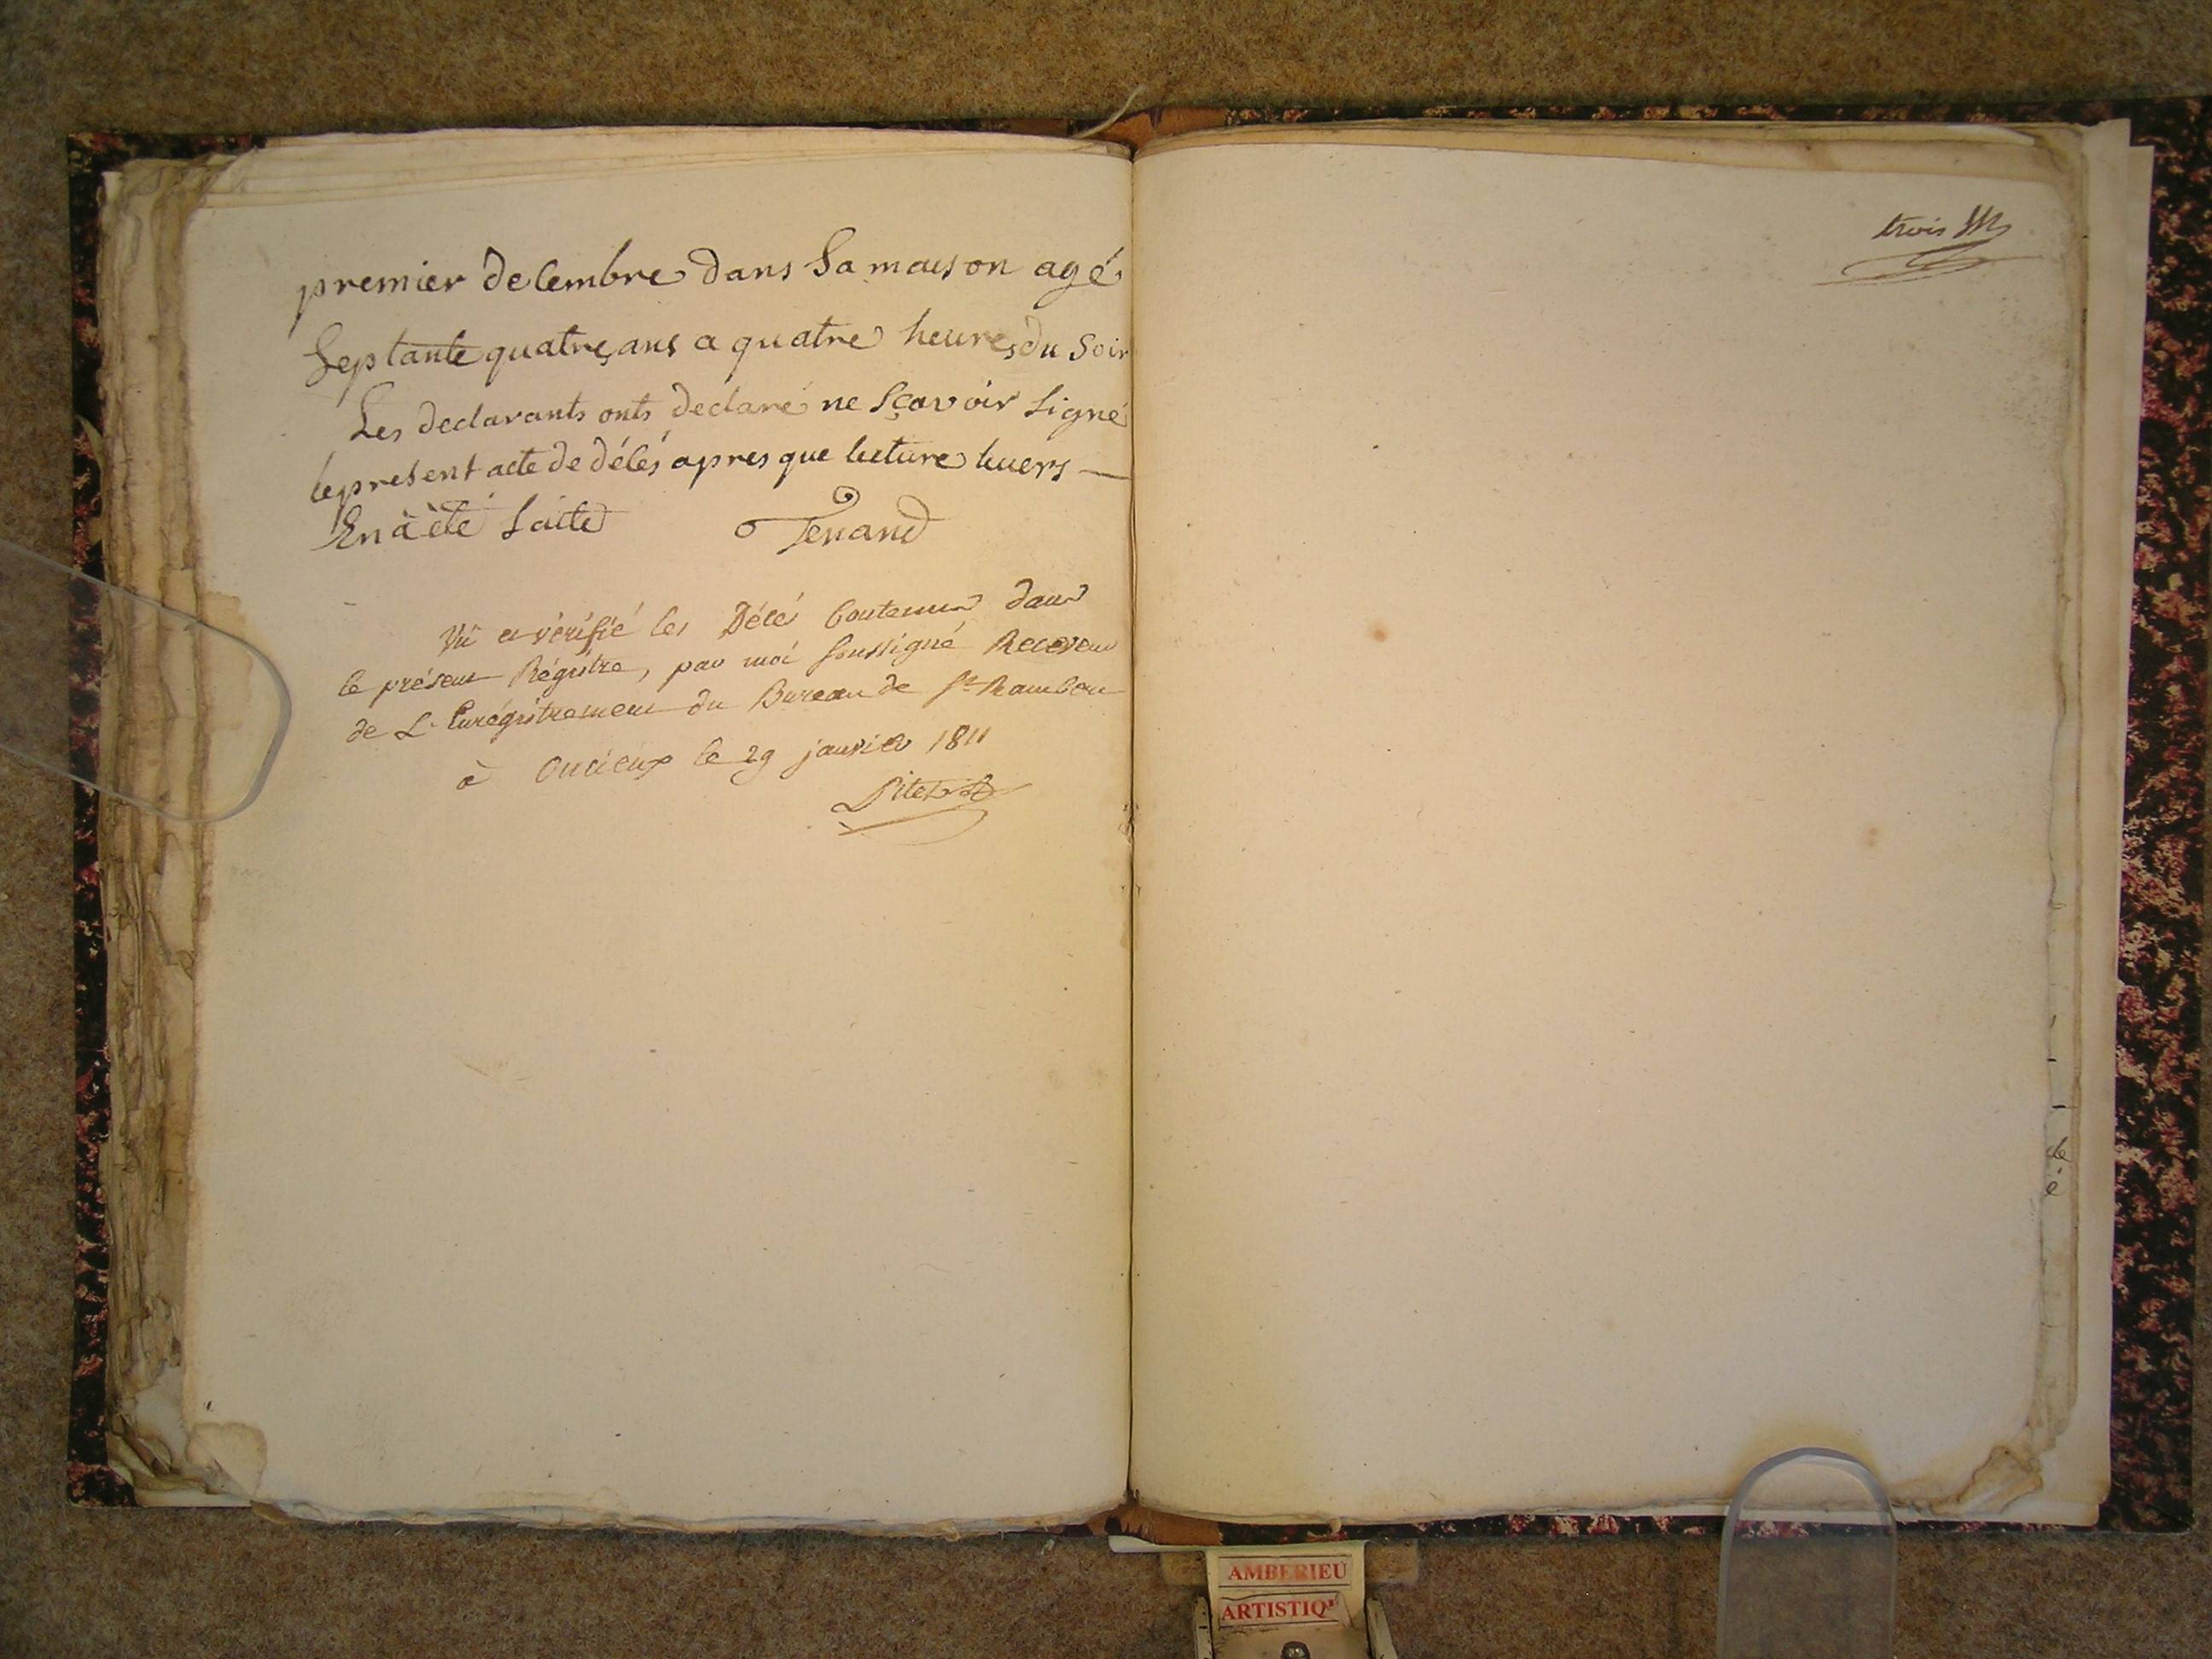 premier decembre dans Sa maison agé
Septante quatre ans a quatre heures du Soir
Les declarants onts declaré ne Sçavoir Signé
le present acte de décés apres que lecture luers
En à été faite Tenand
Vû et vérifié les Décés Contenus dans
le présent Régistre, par moi Soussigné Receveur
de L'Enrégistrement du Bureau de St Rambert
à Oncieux le 29 janvier 1811
trois
AMBERIEU
ARTISTIQ